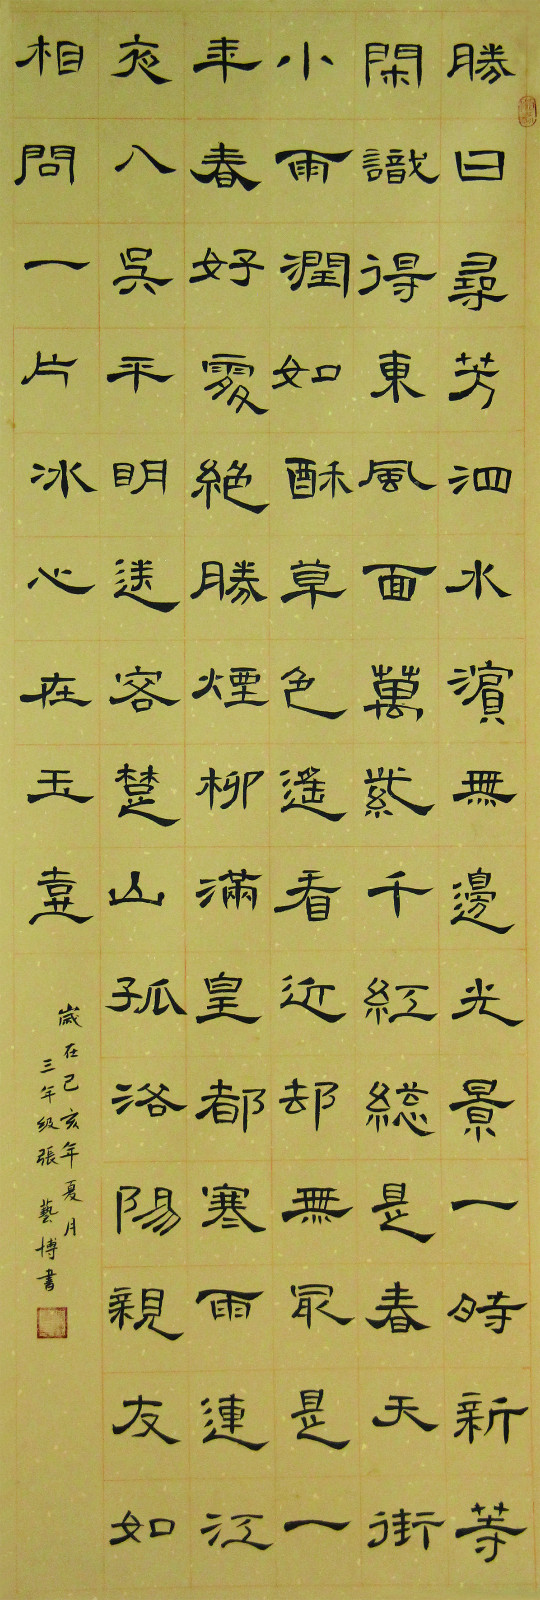 勝日尋芳泗水濱無邊光景一時新等
閑識得東風面萬紫千紅總是春天街
小雨潤如酥草色遙看近却無最是一
年春好處絕勝煙柳滿皇都寒雨連江
夜入吳平明送客楚山孤洛陽親友如
相問一片冰心在玉壺
歲在己亥年夏月
三年级張藝博書